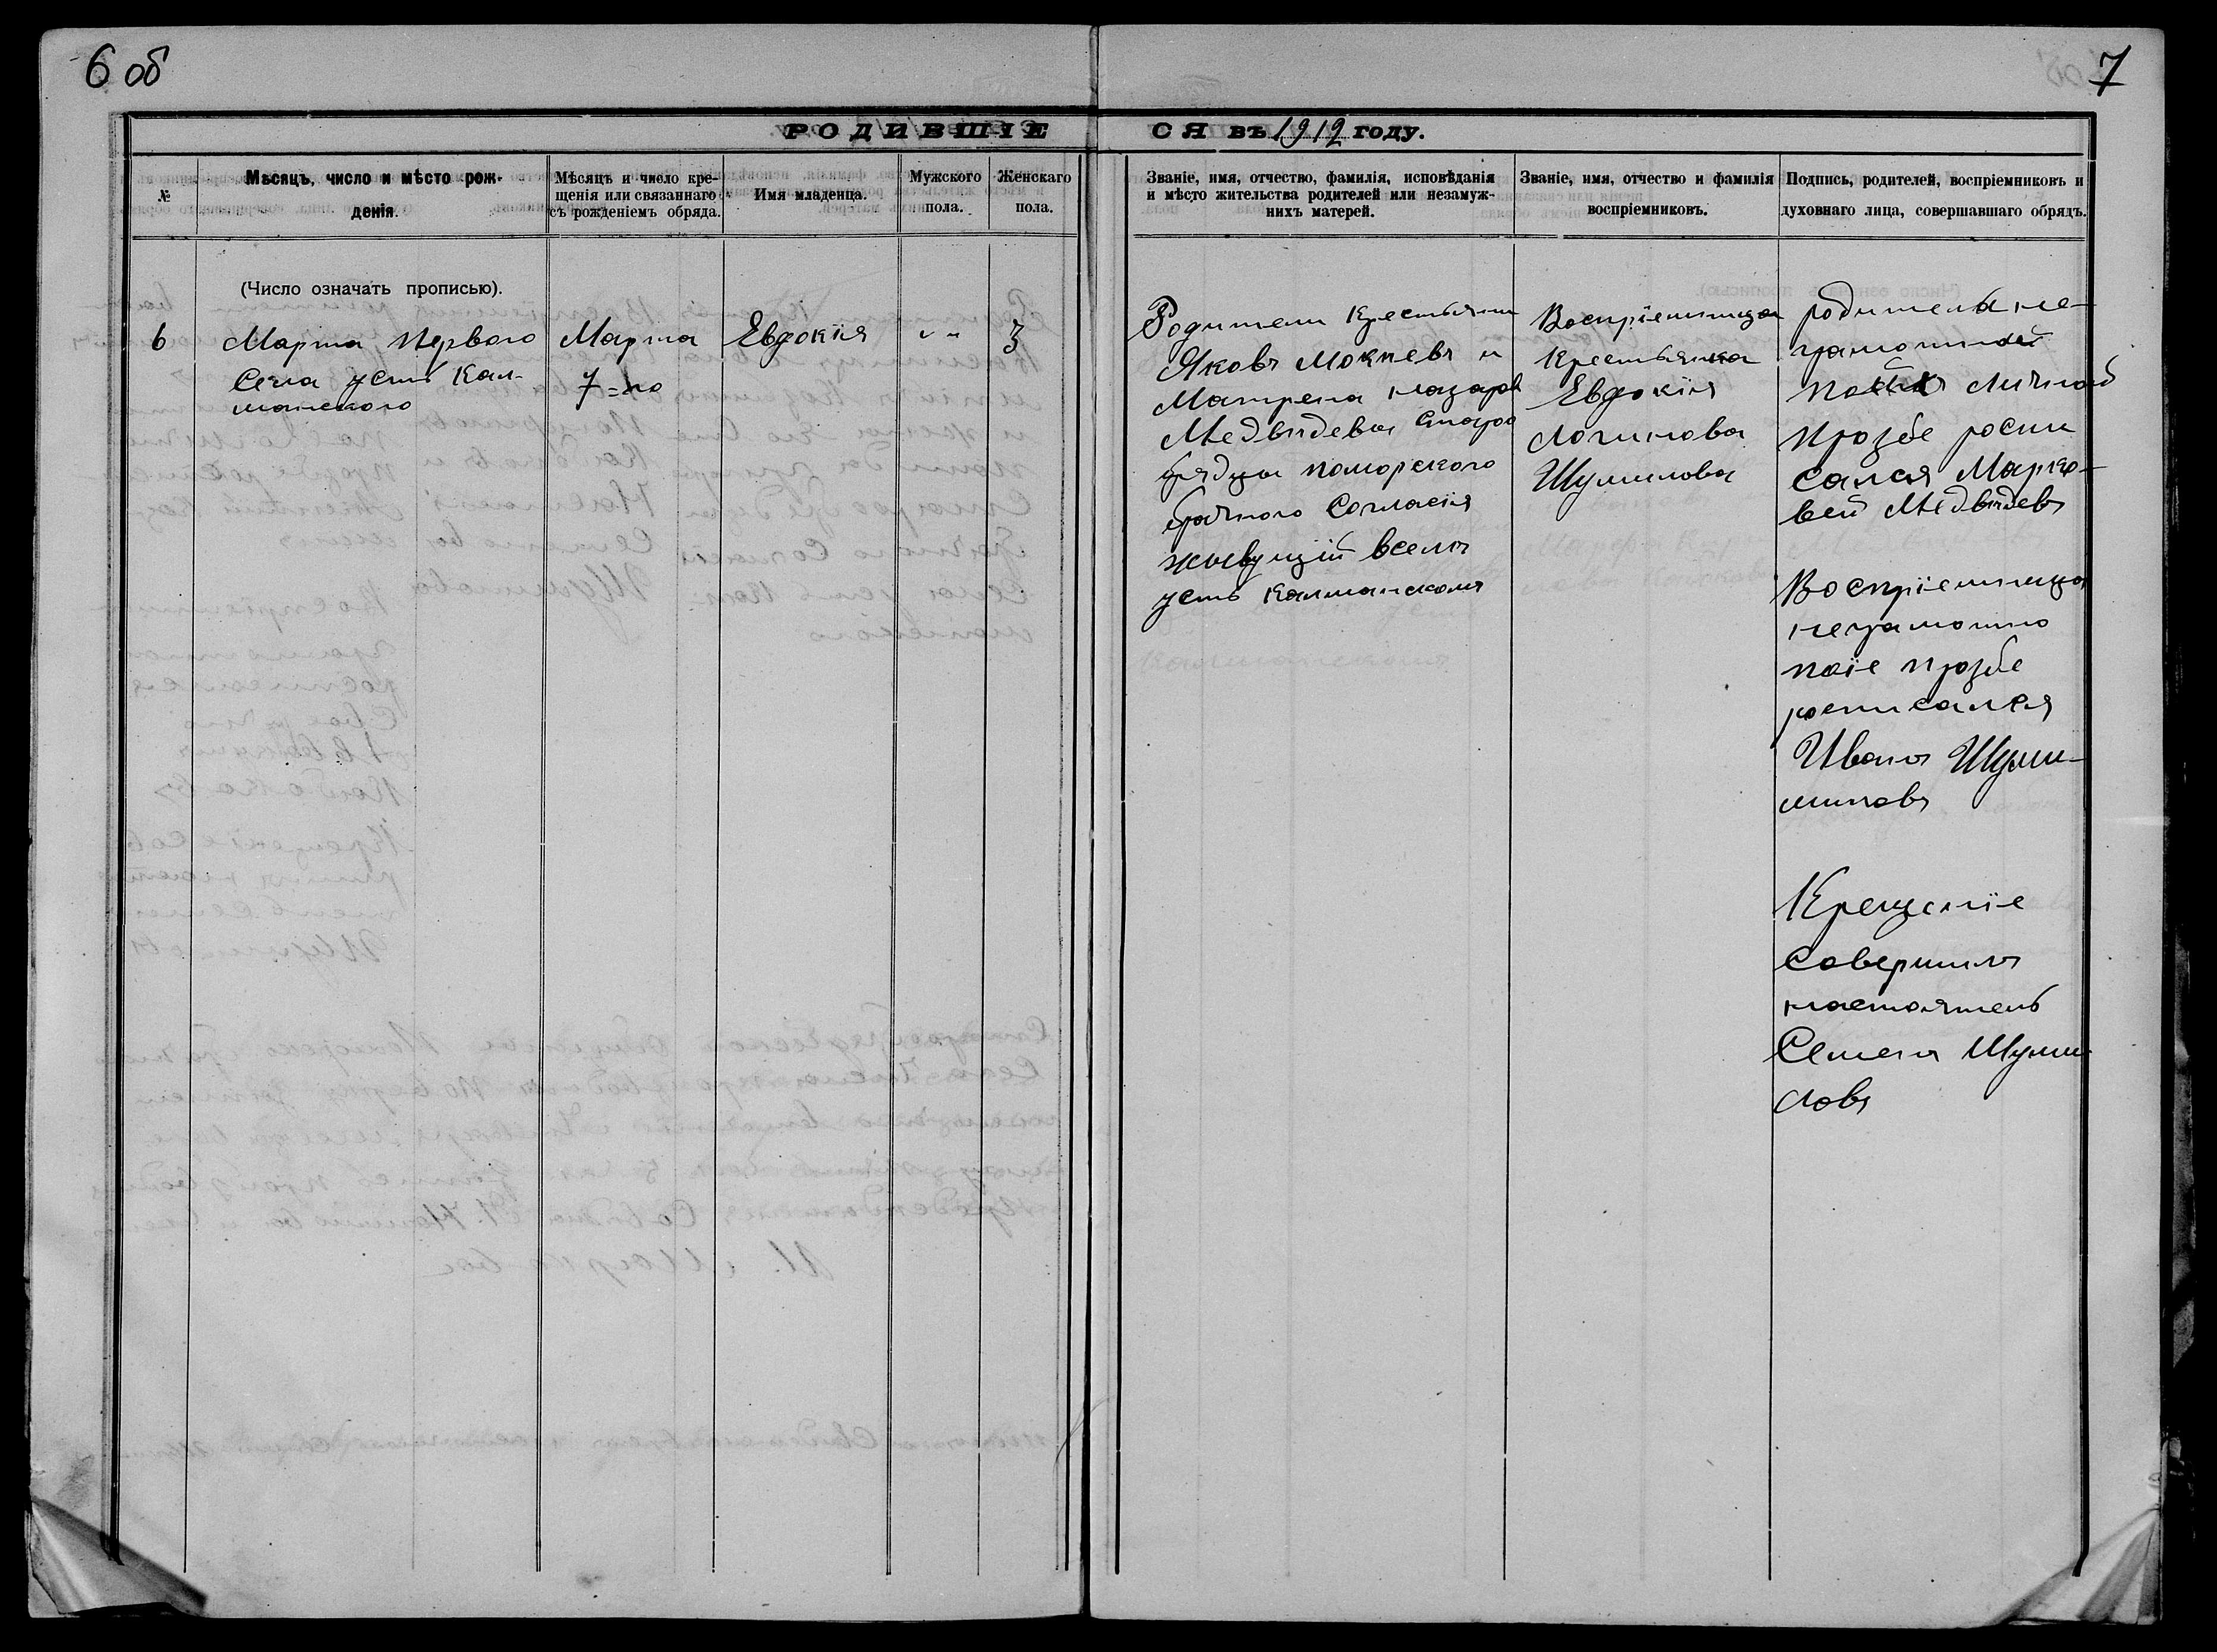 6 об
7
РОДИВШІЕ
СЯ въ 1912 году.
№
Мѣсяцъ, число и мѣсто рож-
денія.
Мѣсяцъ и число кре-
щенія или связаннаго
съ рожденіемъ обряда.
Имя младенца.
Мужского
пола.
Женскаго
пола.
Званіе, имя, отчество, фамилія, исповѣданія
и мѣсто жительства родителей или незамуж-
нихъ матерей.
Званіе, имя, отчество и фамилія
воспріемниковъ.
Подпись, родителей, воспріемниковъ и
духовнаго лица, совершавшаго обрядъ.
(Число означать прописью).
6
Марта Первого
Села усть Кал-
манского
Марта
7=го
Евдокія
" "
3
Родители Крестьяни
Яковъ Мокиевъ и
Матрена назаров
Медвѣдевы Старо
брядцы поморского
брачного Согласія
живущій вселѣ
усть Калманскомъ
Воспріемница
Крестьянка
Евдокія
Логинова
Шумилова
родители не-
грамотной
Личной
прозбе роспи
сался Марко-
вей Медвѣдевъ
Воспріемница
неграмотно
поіе прозбе
росписался
Иванъ Шуми-
миловъ
Крещеніе
Совершилъ
настоятель
Семенъ Шуми-
ловъ